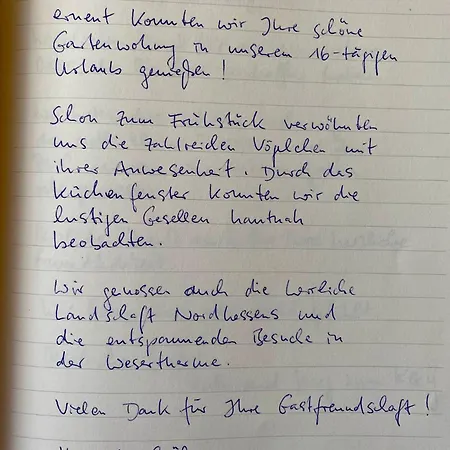 erneut konnten wir Ihre schöne
Gartenwohnung in unserem 16-tägigen
Urlaub genießen!
Schon zum Frühstück verwöhnten
uns die zahlreichen Vöglchen mit
ihrer Anwesenheit. Durch das
Küchenfenster konnten wir die
lustigen Gesellen hautnah
beobachten.
Wir genossen auch die herrliche
Landschaft Nordhessens und
die entspannenden Besuche in
der Wesertherme.
Vielen Dank für Ihre Gastfreundschaft!